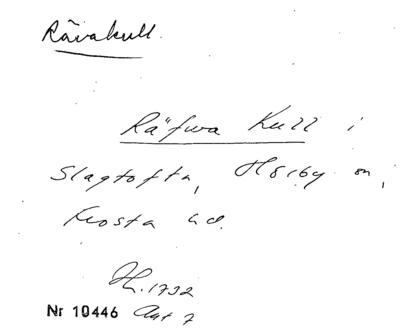 Rävakull.
Räfwa Kull i
Slagtofta, Hörby sn,
Frosta hd.
Jh. 1732
Nr 10446 Akt 7